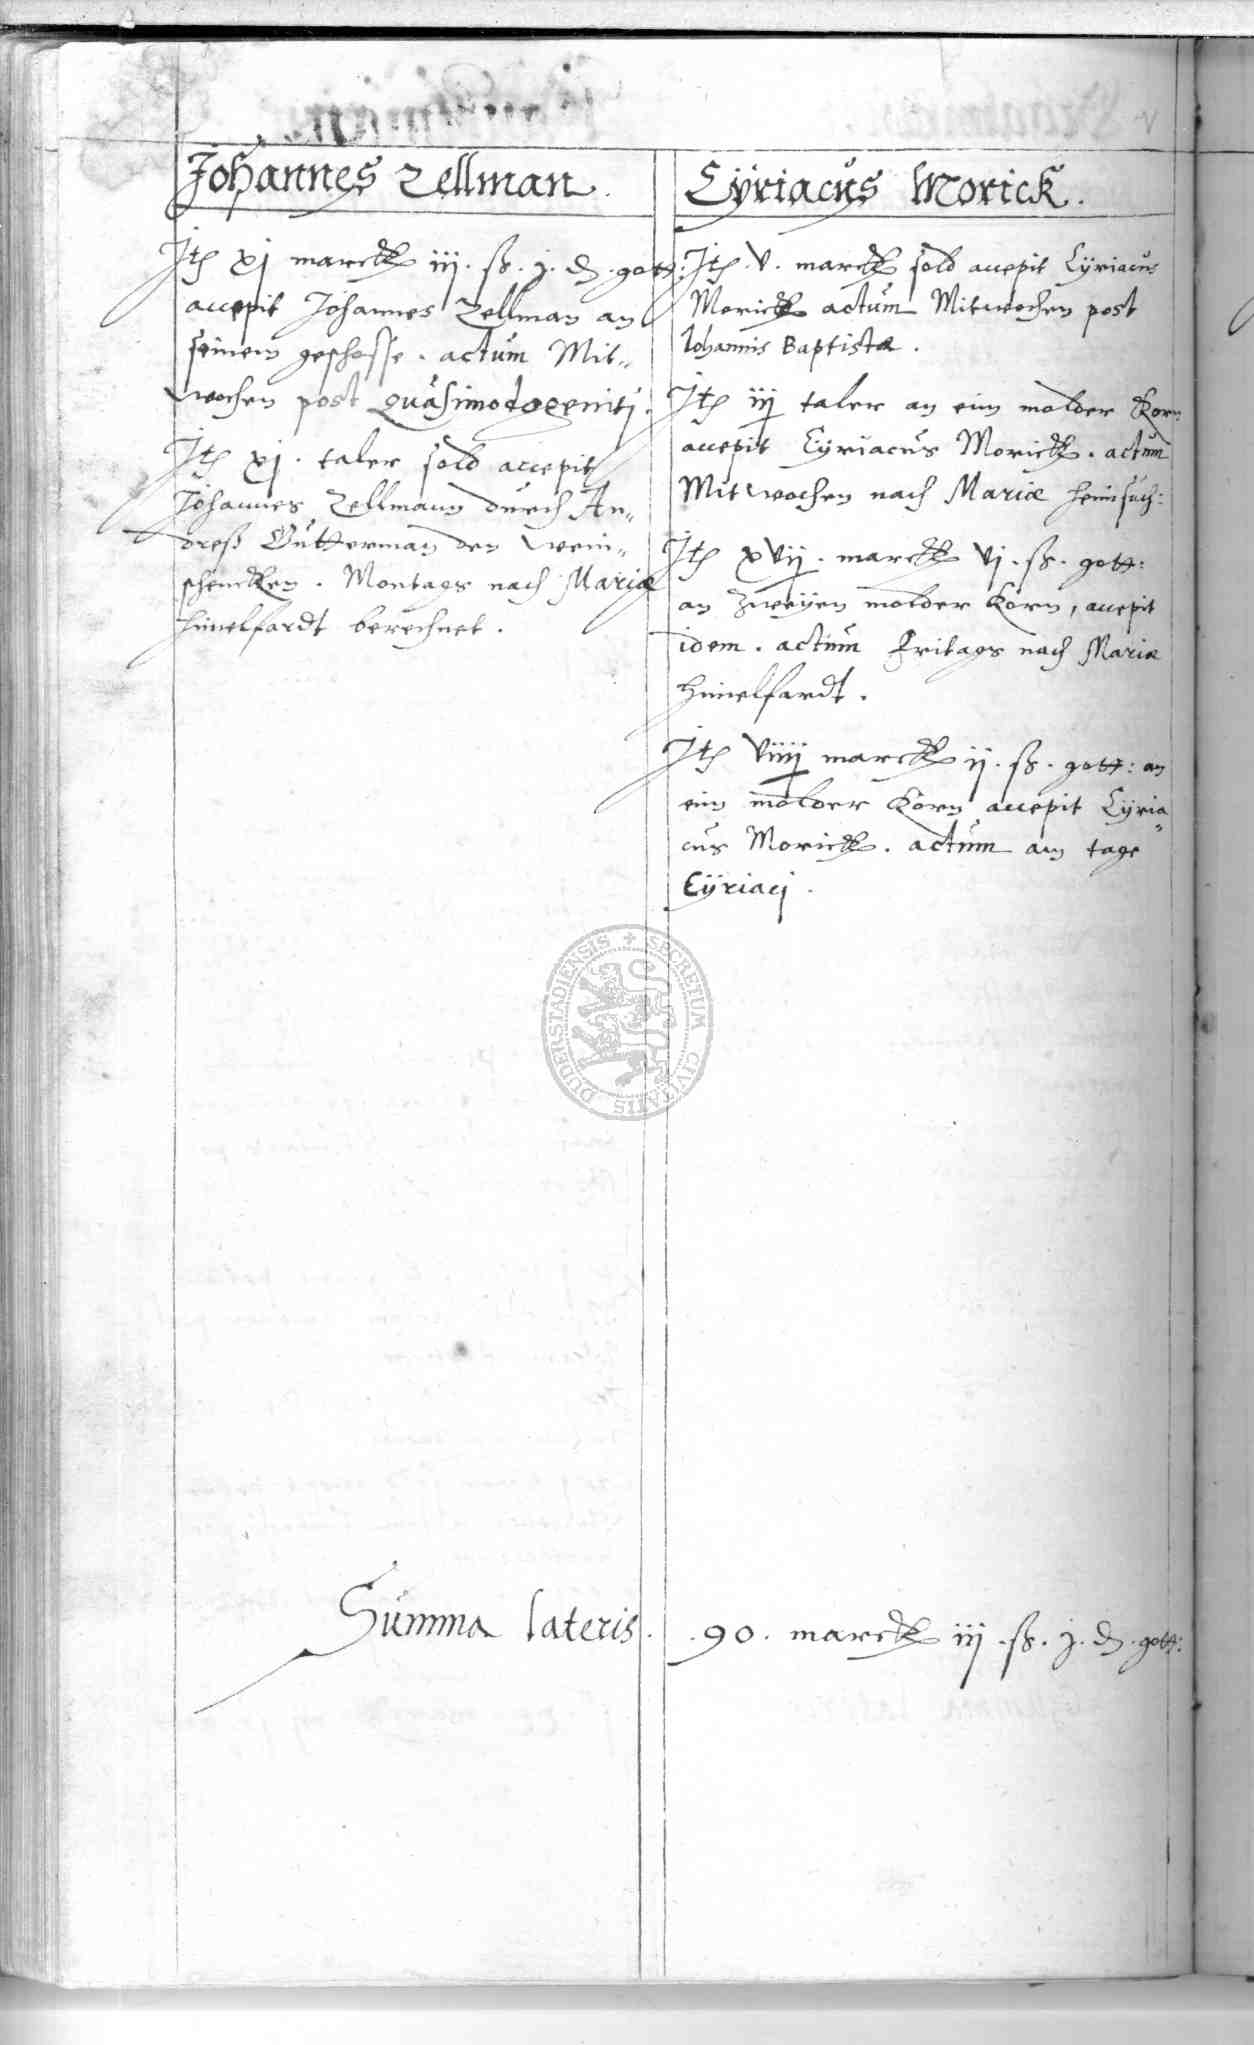 Johannes Zellman.
Jtem xj marck iij. ß. j. d. gott:
accepit Johannes Zellman an
seinem geschosse. actum Mit„
wochen post Quasimodogenitj.
Jtem xj. taler sold accepit
Johannes Zellmann durch An„
dreß Gutterman den wein„
schencken. Montags nach Mariæ
himelfardt berechnet.
Cÿriacus Morick.
Jtem. v. marck sold accepit Cÿriacus
Morick actum Mitwochen post
Iohannis Baptistæ.
Jtem iij taler an eim molder Korn
accepit Cÿriacus Morick. actum
Mitwochen nach Mariæ heimsuch:
Jtem xvij. marck vj. ß. gott:
an zweÿen molder Korn, accepit
idem. actum Fritags nach Mariæ
himelfardt.
Jtem viiij marck ij. ß. gott: an
eim molder Korn accepit Cÿria„
cus Morick. actum am tage
Cÿriacj.
Summa lateris. .90. marck iij. ß. j. d. gott:
SECRETUM CIVITATIS DUDERSTADIENSIS